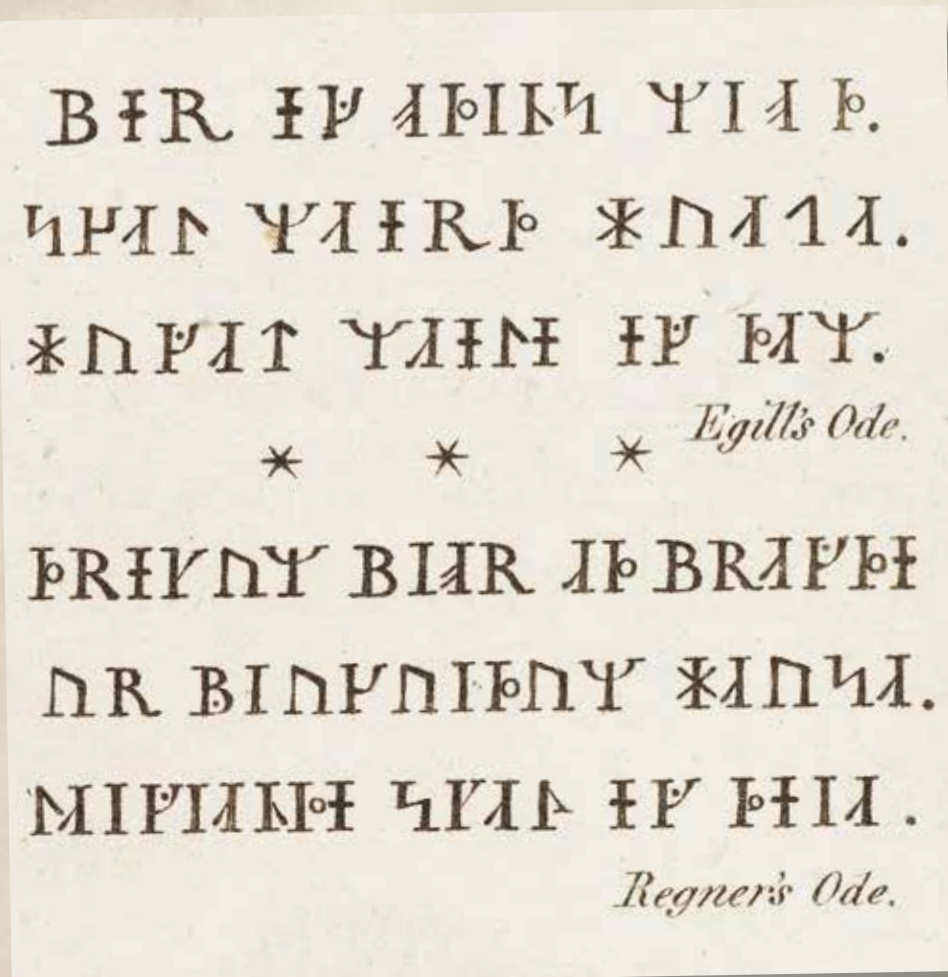 ᛒᚽᚱ ᚽᚵ ᛆᚦᛁᚿᛋ ᛘᛁᛆᚦ.
ᛋᚴᛆᛚ ᛘᛆᚽᚱᚦ ᚼᚢᛆᛐᛆ.
ᚼᚢᚵᛆᛏ ᛘᛆᚽᛚᚽ ᚽᚵ ᚦᛆᛘ.
Egill's Ode.
* * *
ᚦᚱᚽᚴᚢᛘ ᛒᛁᛆᚱ ᛆᚦ ᛒᚱᛆᚵᚦᚽ
ᚢᚱ ᛒᛁᚢᚴᚢᛁᚦᚢᛘ ᚼᛆᚢᛋᛆ.
ᛚᛆᛁᚵᛁᛆᚿᚦᚽ ᛋᚴᛆᛚ ᚽᚵ ᚦᚽᛁᛆ.
Regner's Ode.